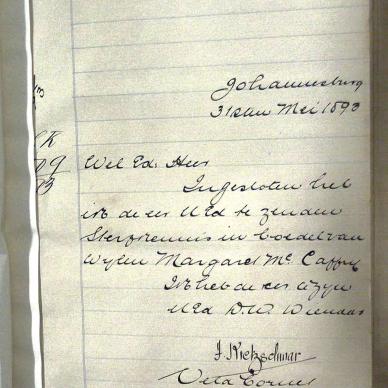 Johannesburg
31sten Mei 1893
Wel Ed. Heer
Ingesloten heb
ik de eer UEd te zenden
Sterfkennis in boedel van
wylen Margaret Mc Caffrey
Ik heb de eer te zyn
UEd D.W. Dienaar